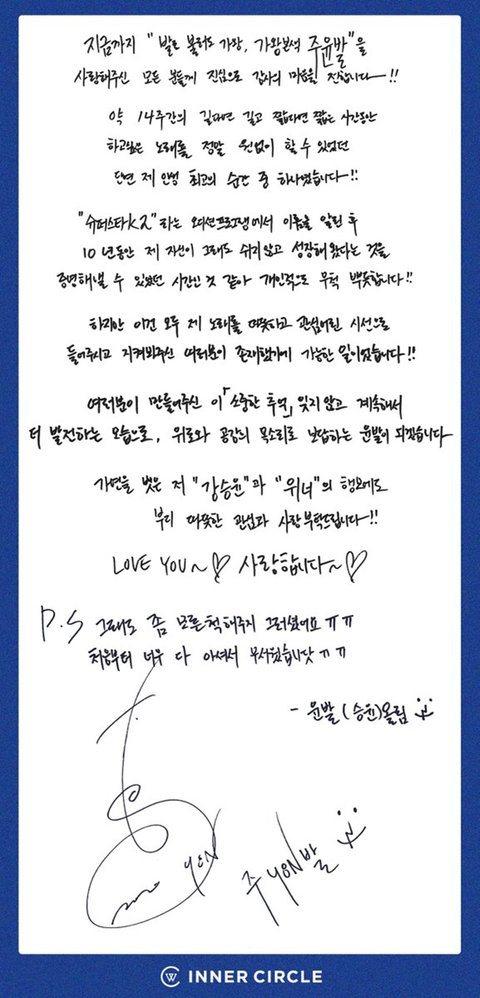 지금까지 "발로 불러도 가왕, 가왕본색 주윤발"을
사랑해주신 모든 분들께 진심으로 감사의 마음을 전합니다-!!
약 14주간의 길다면 길고 짧다면 짧은 시간동안
하고싶은 노래를 정말 원없이 할 수 있었던
단연 제 인생 최고의 순간 중 하나였습니다-!!
"슈퍼스타K2"라는 오디션프로그램에서 이름을 알린 후
10년동안 제 자신이 그래도 쉬지않고 성장해왔다는 것을
증명해낼 수 있었던 시간인 것 같아 개인적으로 무척 뿌듯합니다!!
하지만 이건 모두 제 노래를 따뜻하고 관심어린 시선으로
들어주시고 지켜봐주신 여러분이 존재했기에 가능한 일이었습니다!!
여러분이 만들어주신 이「소중한 추억」잊지않고 계속해서
더 발전하는 모습으로, 위로와 공감의 목소리로 보답하는 윤발이 되겠습니다
가면을 벗은 저 "강승윤"과 "위너"의 행보에도
부디 따뜻한 관심과 사랑 부탁드립니다-!!
LOVE YOU~♡ 사랑합니다~♡
P.S 그래도 좀 모른척해주지 그러셨어요 ㅠㅠ
처음부터 너무 다 아셔서 무서웠습니닷 ㅠㅠ
- 윤발(승윤)올림
YOON
주YOON발
INNER CIRCLE